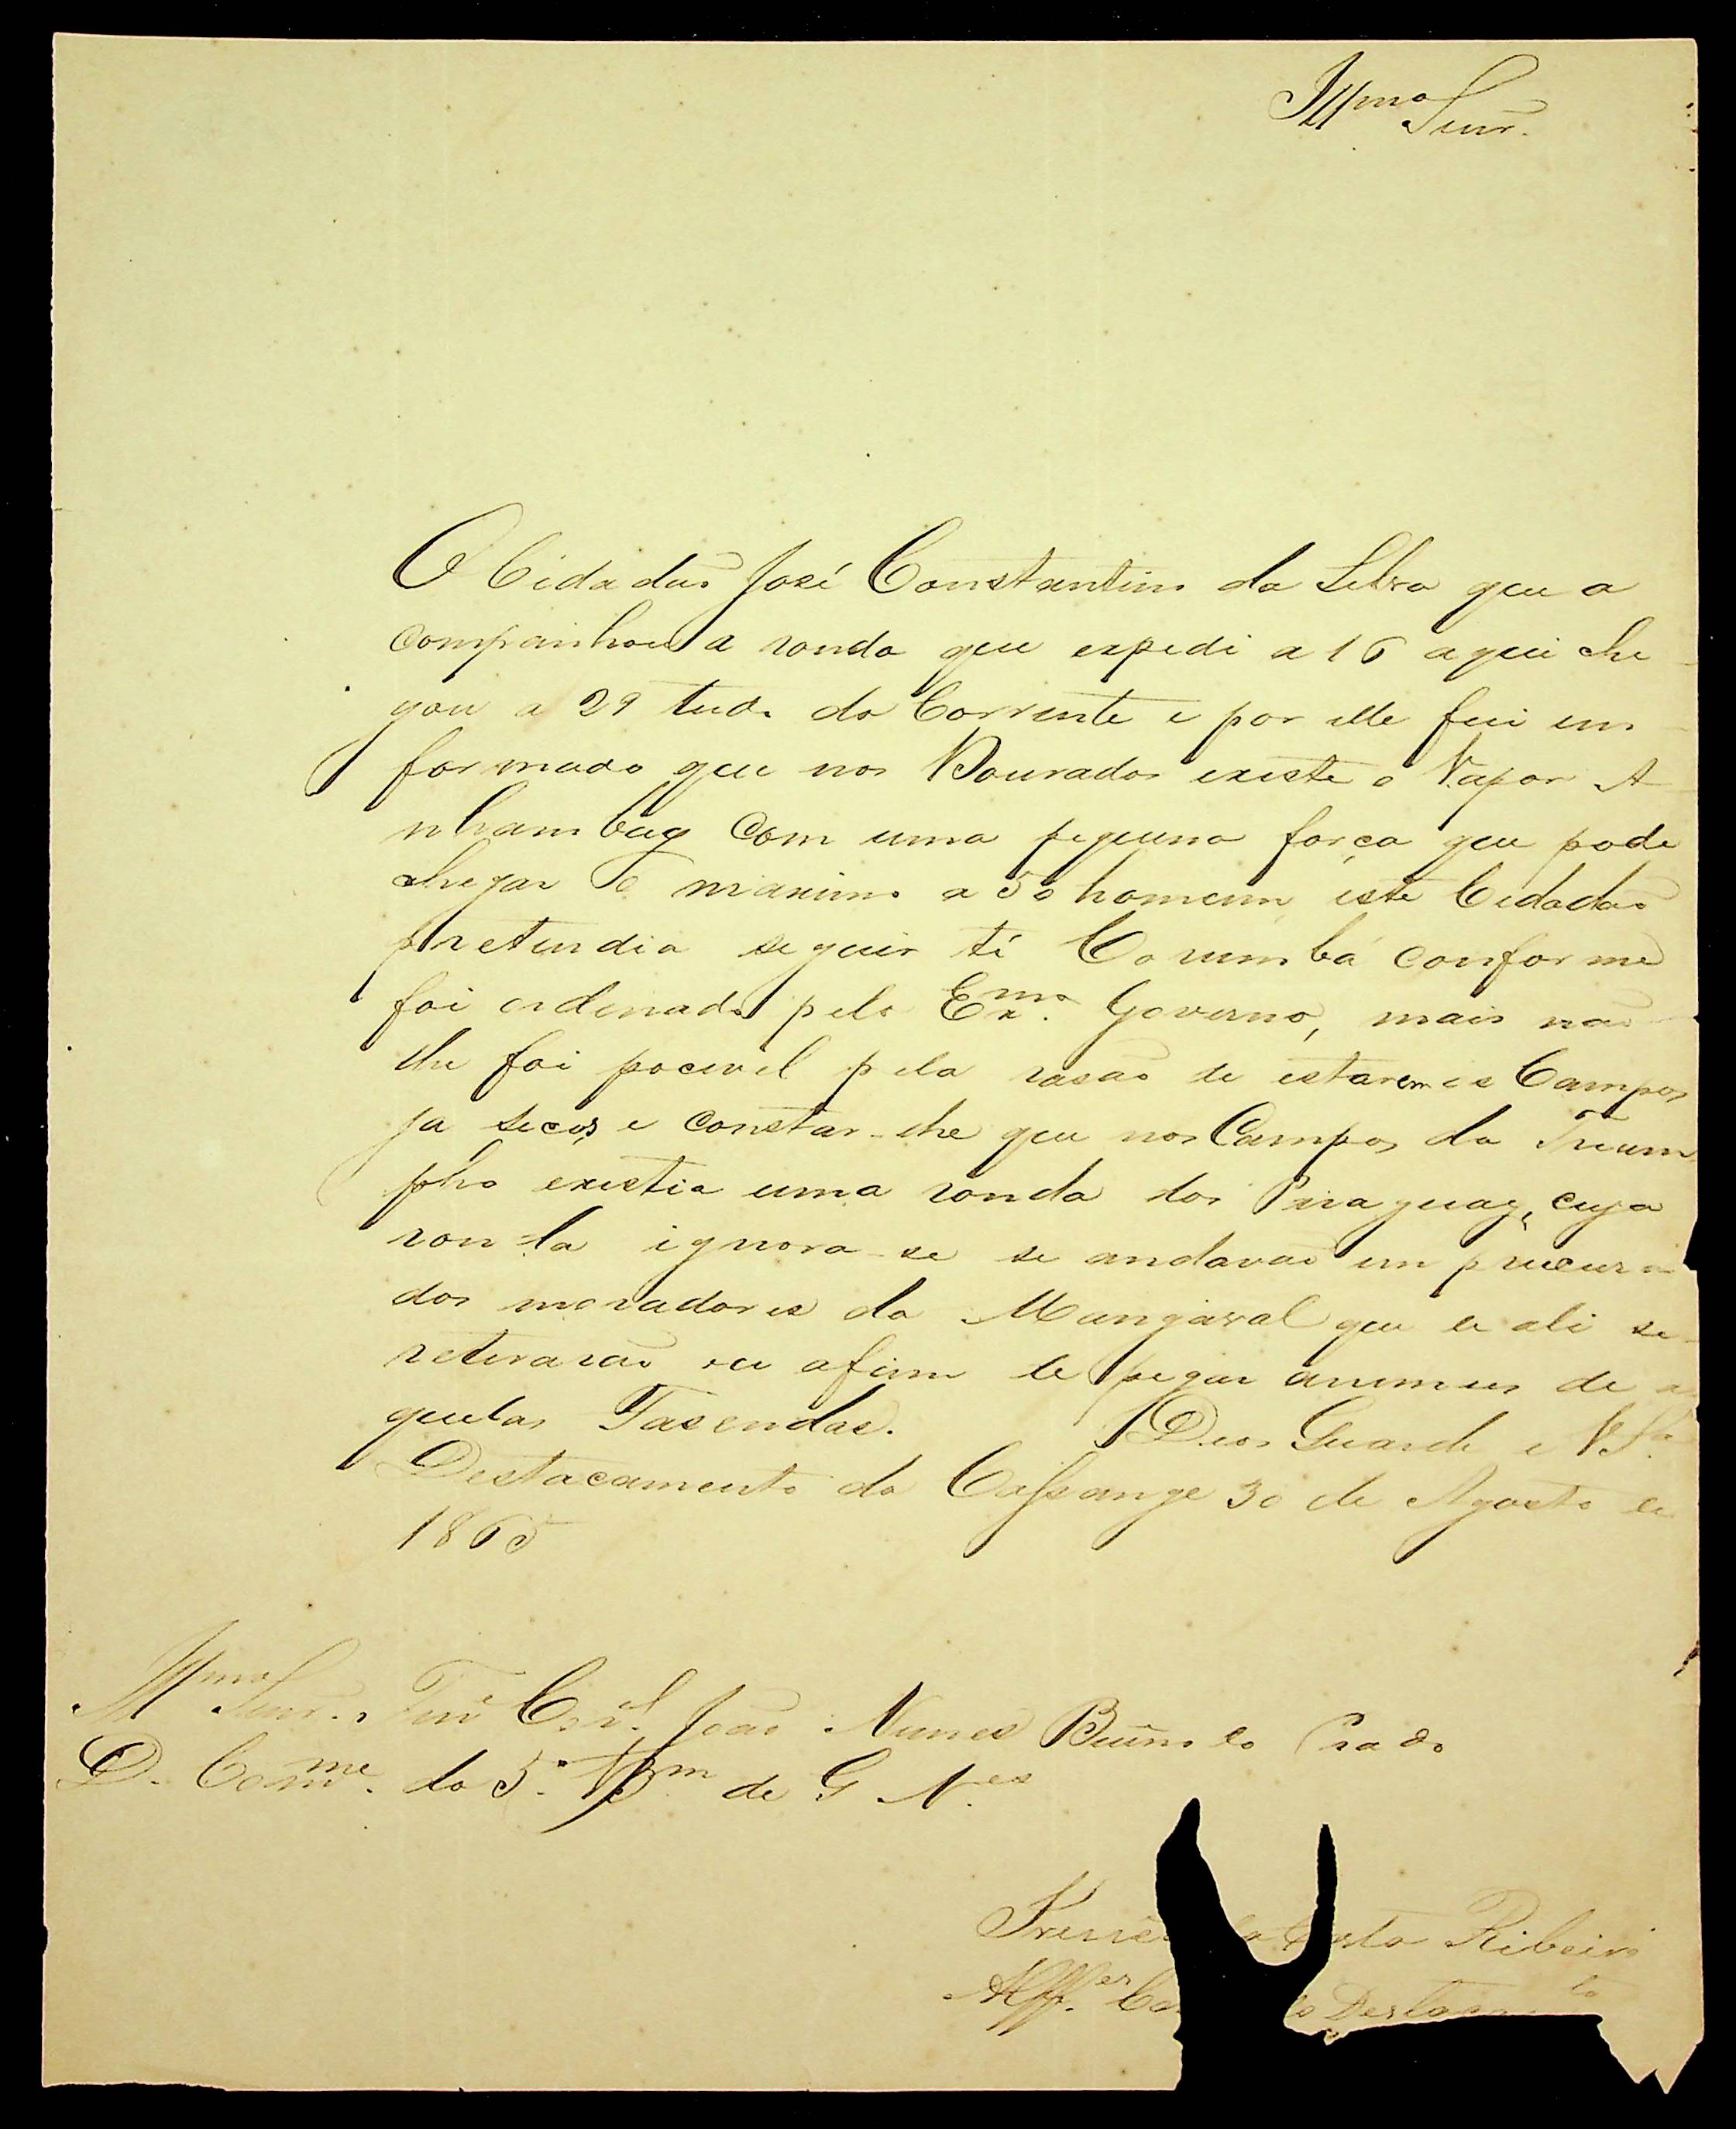 Illmo Senr.
O Cidadão José Constantino da Silva que a
companhou a ronda que expedi a 16 aqui che
gou a 29 tudo do Corrente e por elle fui in
formado que nos Dourados existe o Vapor A
nhambay Com uma piquena força que pode
chegar o maximo a 50 homens, este Cidadão
pretendia seguir té Corumbá conforme
foi ordenado pelo Exmo. Governo, mais não
lhe foi pocivel pela rasão de estarem os Campos
ja secos, e constar-lhe que nos Campos do Trium
pho existia uma ronda dos Paraguay, cuja
ronda ignora-se se andavão em procura
dos moradores do Mangaval que de ali se
retirarão ou afim de pegar animaes de a
quelas Fasendas. Deos Guarde a V.Sa.
Destacamento do Cassange 30 de Agosto de
1865
Illmo Senr. Tene. Corel. João Nunes Bueno do Prado
D. Comme. do 5o. Bm de G. N.es
da Costa Ribeiro
Alff.es Destacamto